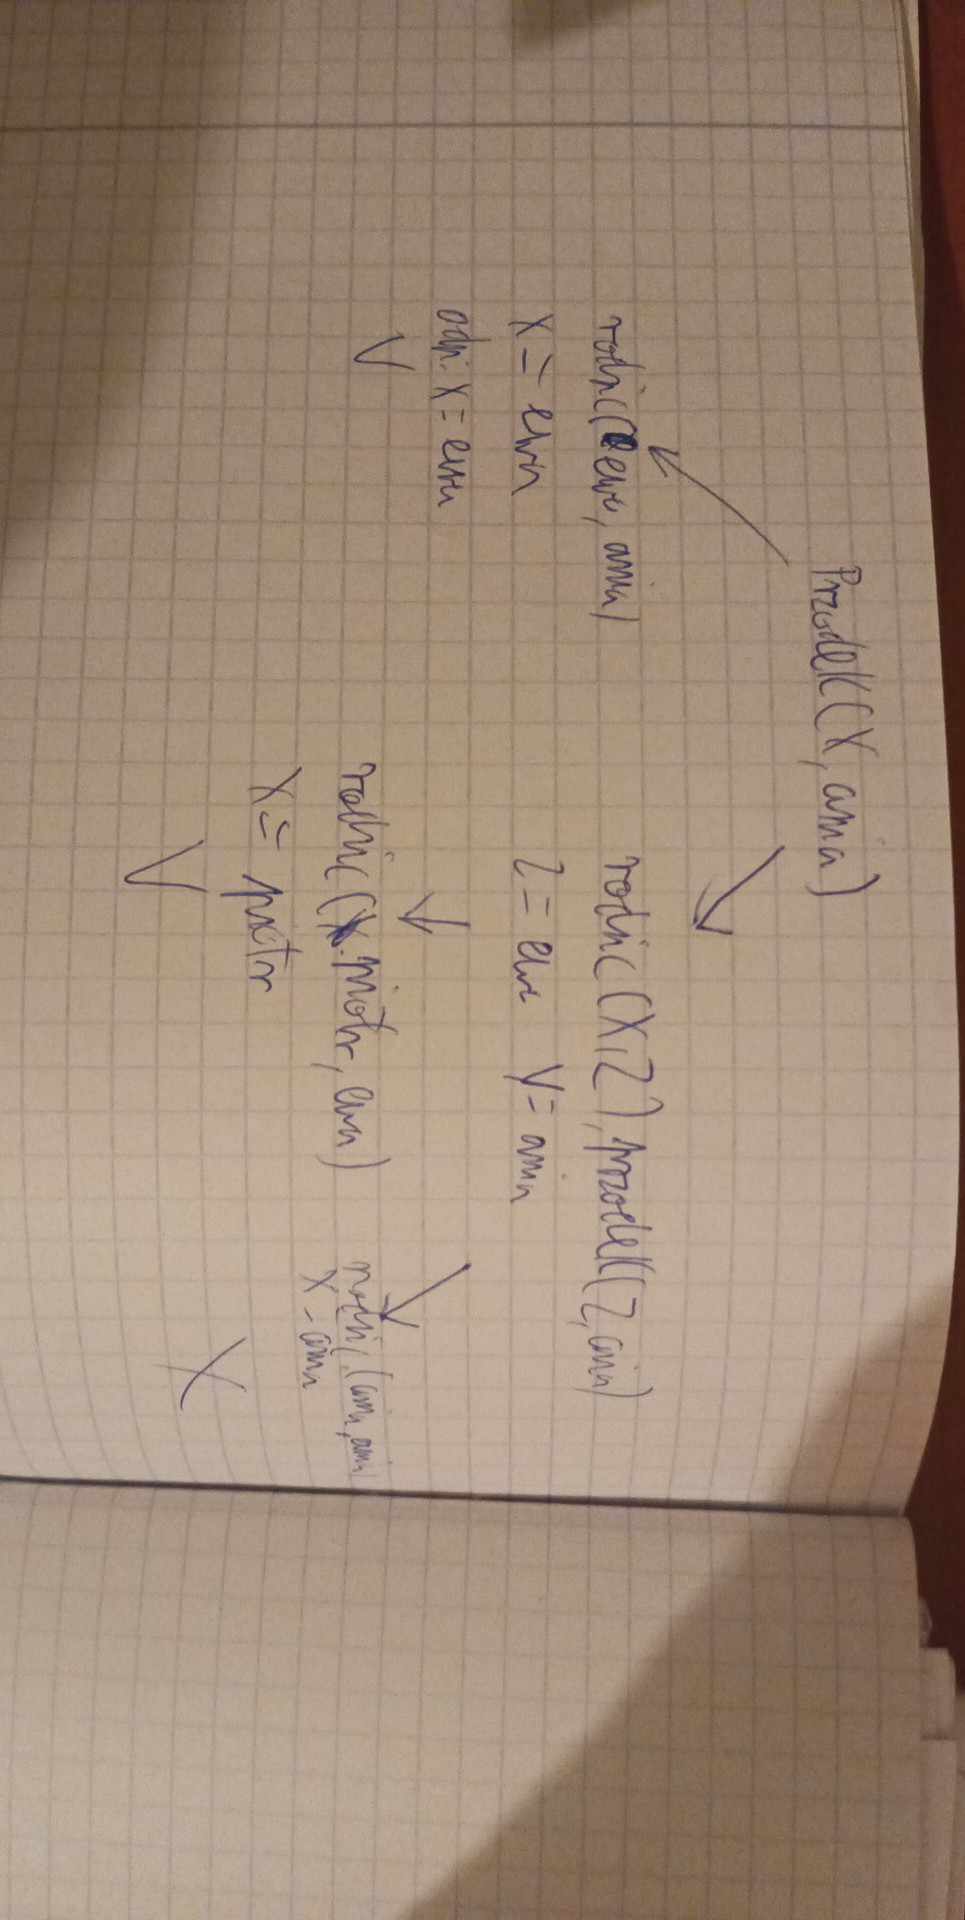 Przodek(X, ania)
rodzic(ewa, ania)
X = ewa
odp: X = ewa
rodzic(X,Z), przodek(Z, ania)
Z = ewa Y = ania
rodzic(piotr, ewa)
X = piotr
rodzic(ania, ania)
X = ania
X